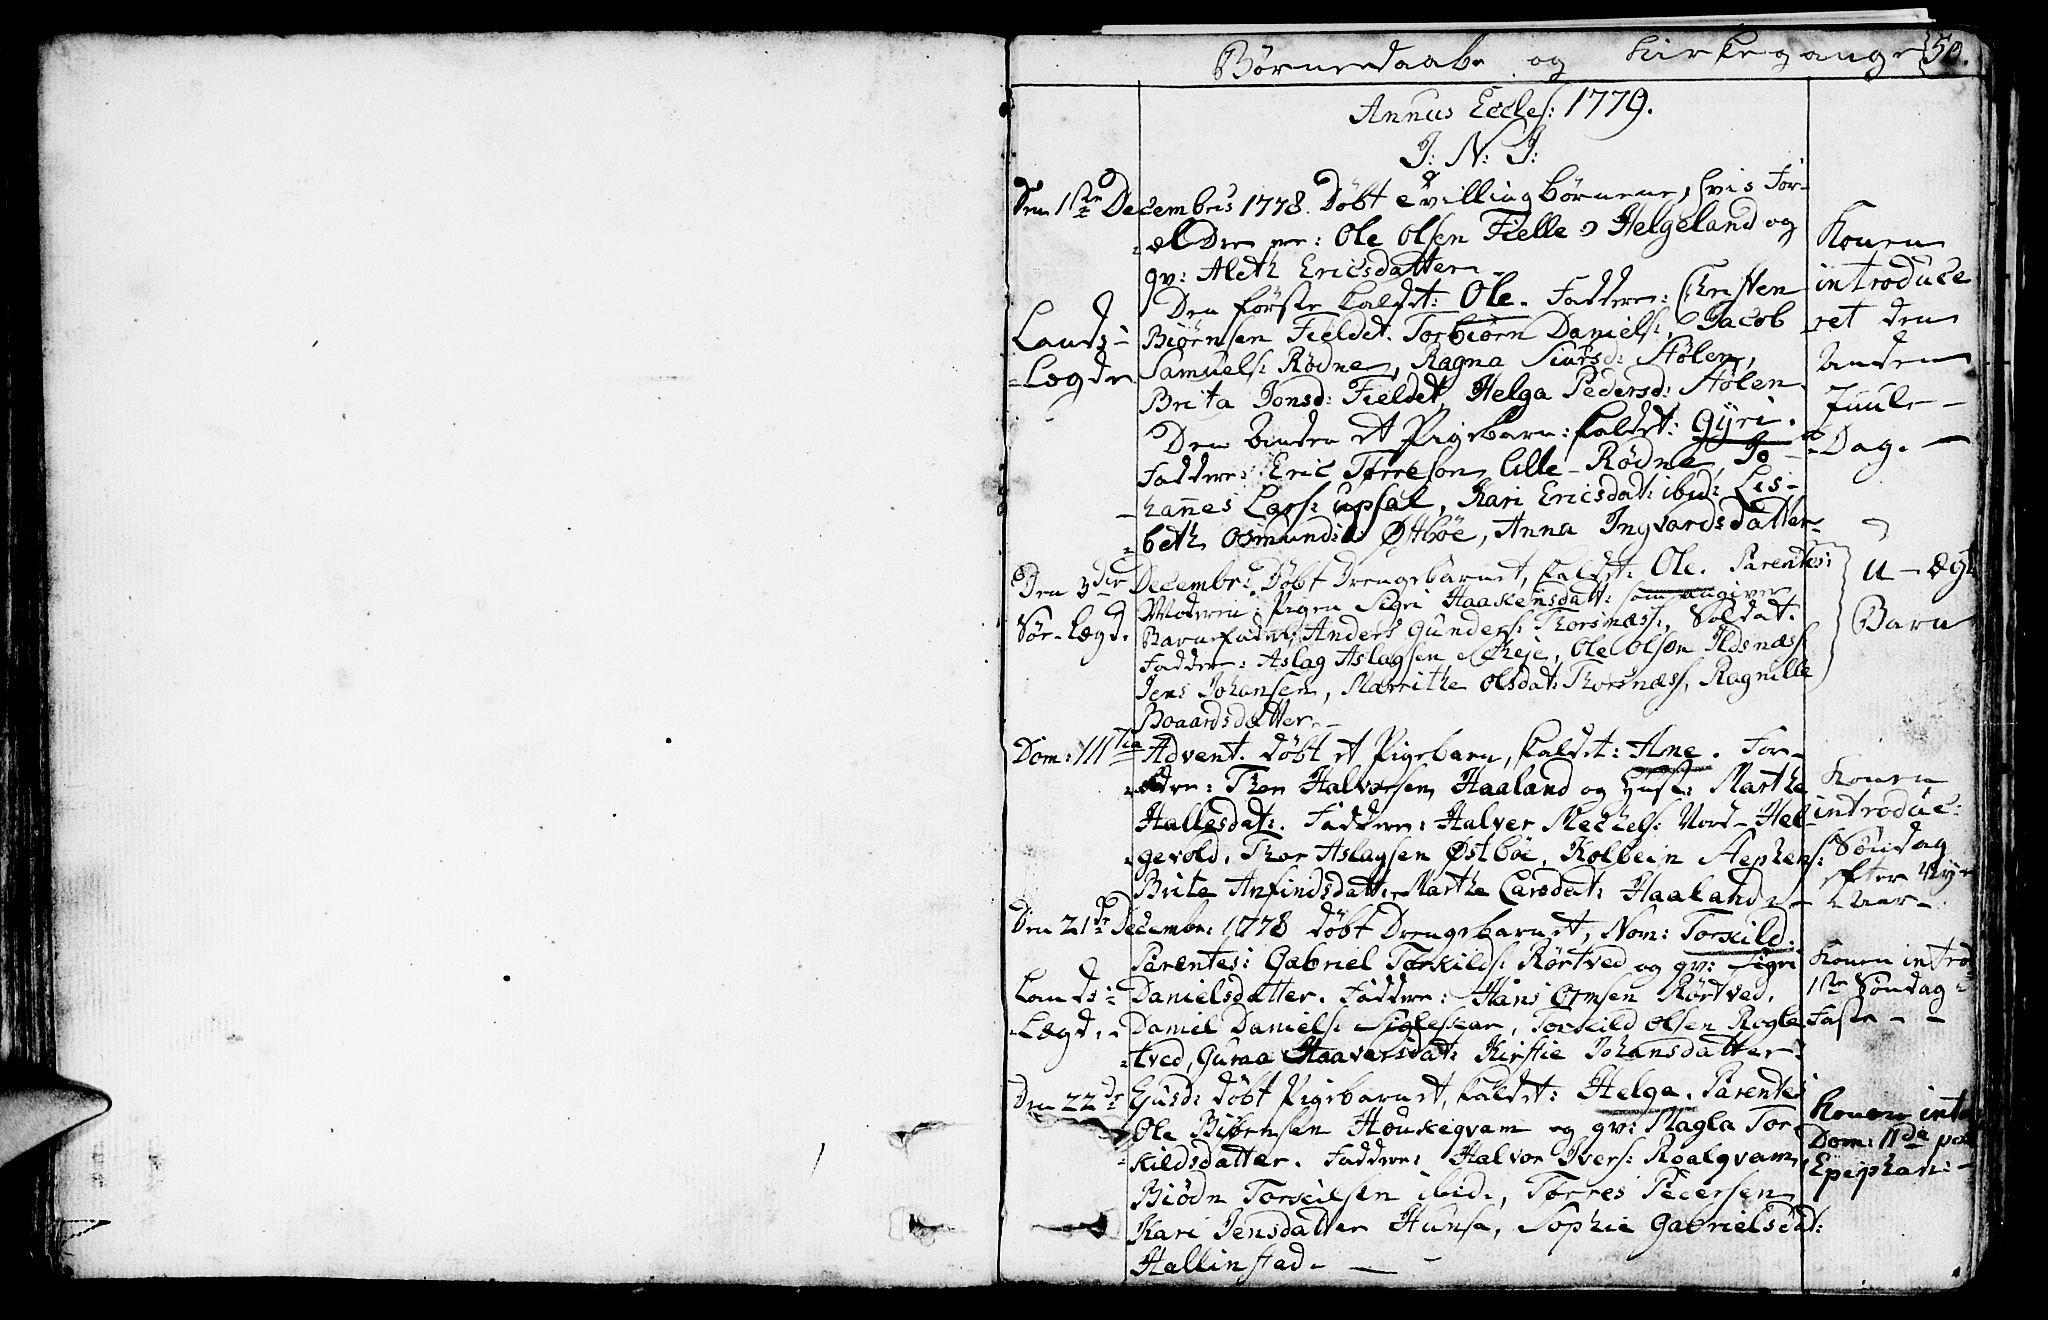 Børnedaabe og Kirkegange 50.
Annus Eccles: 1779.
J: N: J:
Den 1ste Decembris 1778. Døbt tvillingbørnene, hvis For-
=ældre ere: Ole Olsen Fielle Helgeland og
gv: Aleth Ericsdatter
Den første kaldet: Ole. Faddere: Christen
Biørnsen Fieldet. Torbiørn Daniels: Jacob
Samuels: Rødne, Ragna Siursd: Stølen,
Brita Jonsd: Fieldet, Helga Pedersd: Stølen
Den anden et Pigebarn: kaldet: Gyri.
Faddere: Eric Torreson lille-Rødne, Jo-
hannes Lars: Upsal, Kari Ericsdat: ibid: Lis-
=beth Osmundsd: Østbøe, Anna Ingvardsdatter
Lands-
=Legde
Konen
introduce
ret den
anden
Juule-
=Dag.
Den 3die Decembr: Døbt Drengebarnet, kaldet: Ole. Parentes:
Moderen: Pigen Sigri Haakensdatt: som angiver
Barnefader, Anders Gunders: Thorsnæs, Soldat.
Faddere: Aslag Aslagsen, Ole Olson Ildsnæs
Jens Johansen, Marrithe Olsdat: Thorsnæs, Ragnille
Boaardsdatter
Sør-Legd.
U-ægt
Barn
Dom: III Tia Advent. døbt et Pigebarn, kaldet: Ane. For-
=ældre: Thor Halvorsen Haaland og Hust: Marthe
Hallesdat:. Faddere: Halver Mechels: Nord-Hel-
gevold, Thor Aslagsen Østbøe, Kolbein Stephens:
Brite Anfindsdatt: Marthe Larsdat: Haaland
Konen
introduc:
Søndag
efter Nye
Aar
Den 21de Decembr: 1778 døbt Drengebarnet, Nom: Torkild.
Parentes: Gabriel Torkilds: Rørtved og gv: Sigri
Danielsdatter. Faddere: Hans Ormsen Rørtved,
Daniel Daniels: Sigleskar, Torkild Olsen Rogle
=tved, Guroa Haaversdat: Kirstie Johansdatter
Lands-
=Legd.
Konen introd
1ste Søndag
Faste
Den 22de Ejusd: døbt Pigebarnet, kaldet: Helga. Parentes
Ole Biørnsen Houkegvam og gv: Magla Tor-
kildsdatter. Faddere: Halvor Ivers: Roalgvam
Biødn Torkilsen ibid:, Torres Pedersen
Kari Jensdatter Hunse, Sophie Gabrielsdat:
Hallinstad.
Konen intr
Dom: IIda post
Epiphan: